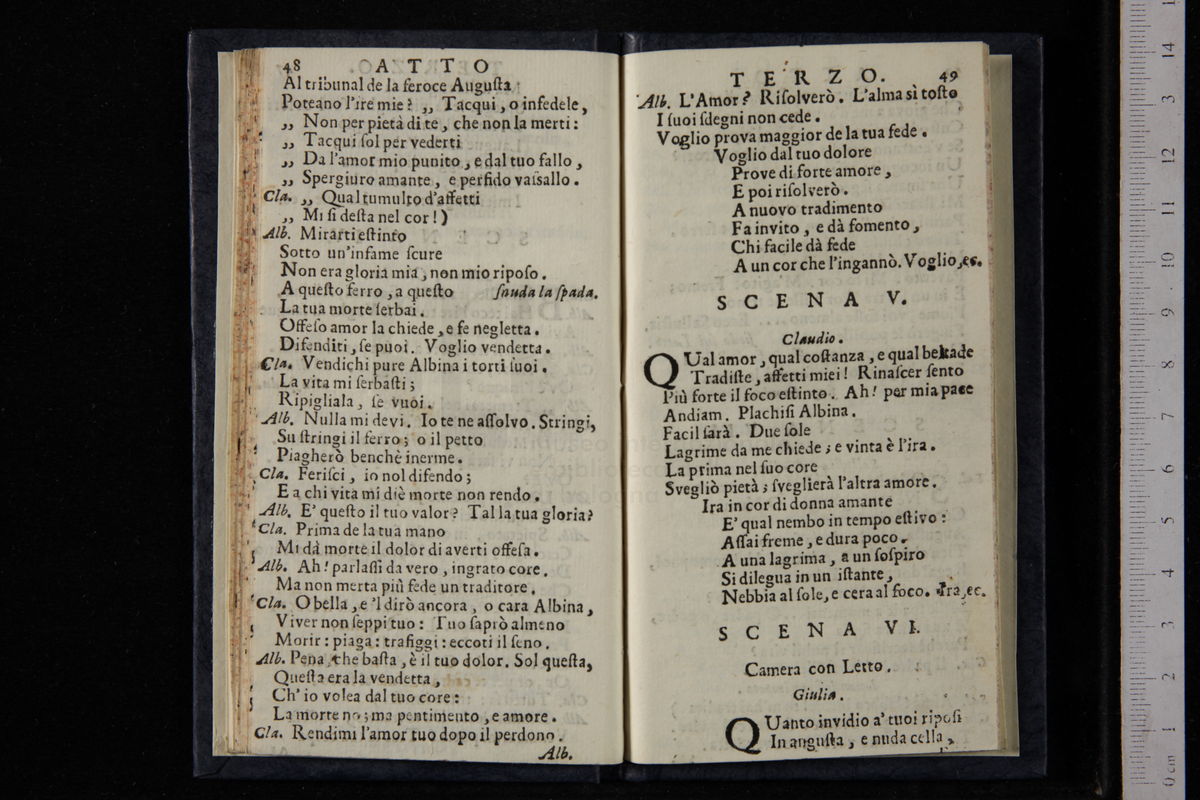 48 ATTO
Al tribunal de la feroce Auguſta
Poteano l'ire mie? ,, Tacqui, o infedele,
,, Non per pietà di te, che non la merti:
,, Tacqui ſol per vederti
,, Da l'amor mio punito, e dal tuo fallo,
,, Spergiuro amante, e perfido vaſsallo.
Cla. ,, Qual tumulto d'affetti
,, Mi ſi deſta nel cor!)
Alb. Mirarti eſtinto
Sotto un'infame ſcure
Non era gloria mia, non mio ripoſo.
A queſto ferro, a queſto ſnuda la ſpada.
La tua morte ſerbai.
Offeſo amor la chiede, e fe negletta.
Difenditi, ſe puoi. Voglio vendetta.
Cla. Vendichi pure Albina i torti ſuoi.
La vita mi ſerbaſti;
Ripigliala, ſe vuoi.
Alb. Nulla mi devi. Io te ne aſſolvo. Stringi,
Su ſtringi il ferro; o il petto
Piagherò benchè inerme.
Cla. Feriſci, io nol difendo;
E a chi vita mi diè morte non rendo.
Alb. E' queſto il tuo valor? Tal la tua gloria?
Cla. Prima de la tua mano
Mi dà morte il dolor di averti offeſa.
Alb. Ah! parlaſſi da vero, ingrato core.
Ma non merta più fede un traditore.
Cla. O bella, e 'l dirò ancora, o cara Albina,
Viver non ſeppi tuo: Tuo ſaprò almeno
Morir: piaga: trafiggi: eccoti il ſeno.
Alb. Pena, che baſta, è il tuo dolor. Sol queſta,
Queſta era la vendetta,
Ch' io volea dal tuo core:
La morte no; ma pentimento, e amore.
Cla. Rendimi l'amor tuo dopo il perdono.
Alb.
TERZO. 49
Alb. L'Amor? Riſolverò. L'alma sì toſto
I ſuoi ſdegni non cede.
Voglio prova maggior de la tua fede.
Voglio dal tuo dolore
Prove di forte amore,
E poi riſolverò.
A nuovo tradimento
Fa invito, e dà fomento,
Chi facile dà fede
A un cor che l'ingannò. Voglio, ec.
SCENA V.
Claudio.
QUal amor, qual coſtanza, e qual beltade
Tradiſte, affetti miei! Rinaſcer ſento
Più forte il foco eſtinto. Ah! per mia pace
Andiam. Plachiſi Albina.
Facil ſarà. Due ſole
Lagrime da me chiede; e vinta è l'ira.
La prima nel ſuo core
Svegliò pietà; ſveglierà l'altra amore.
Ira in cor di donna amante
E' qual nembo in tempo eſtivo:
Aſſai freme, e dura poco.
A una lagrima, a un ſoſpiro
Si dilegua in un iſtante,
Nebbia al ſole, e cera al foco. Ira, ec.
SCENA VI.
Camera con Letto.
Giulia.
QUanto invidio a' tuoi ripoſi
In anguſta, e nuda cella,